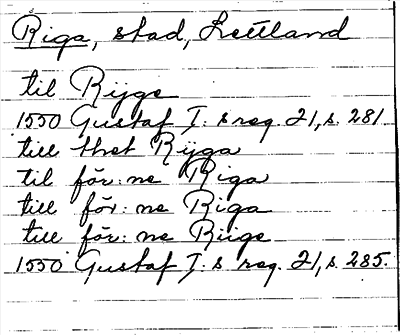 Riga, stad, Lettland
til Rijge
1550 Gustaf I: s reg. 21, s. 281.
till thet Rijga
til för: ne Riga
till för: ne Riga
till för: ne Riige
1550 Gustaf I: s reg. 21, s. 285.